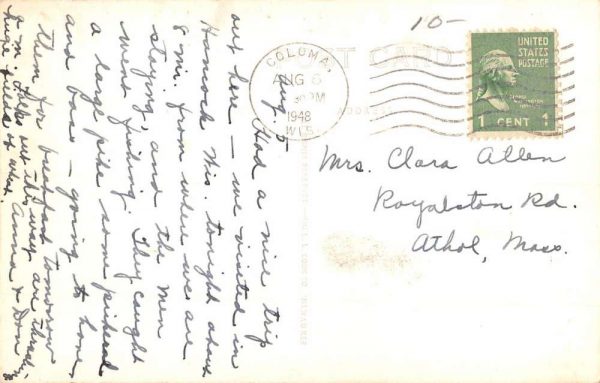 10-
POST CARD
COLUMA.
AUG 6
PM
1948
WIS.
UNITED
STATES
POSTAGE
1 CENT 1
ADDRESS
Mrs. Clara Allen
Royalston Rd.
Athol, Mass.
Aug. 5
Had a nice trip
out here - we visited in
Hancock Wis. tonight about
8 mi. from where we are
staying, and the men
went fishing. They caught
a large pike some pickerel
and bass - going to have
them for breakfast tomorrow
a.m. Folks out this way are thresh-
ing
their fields of
Anna & Don